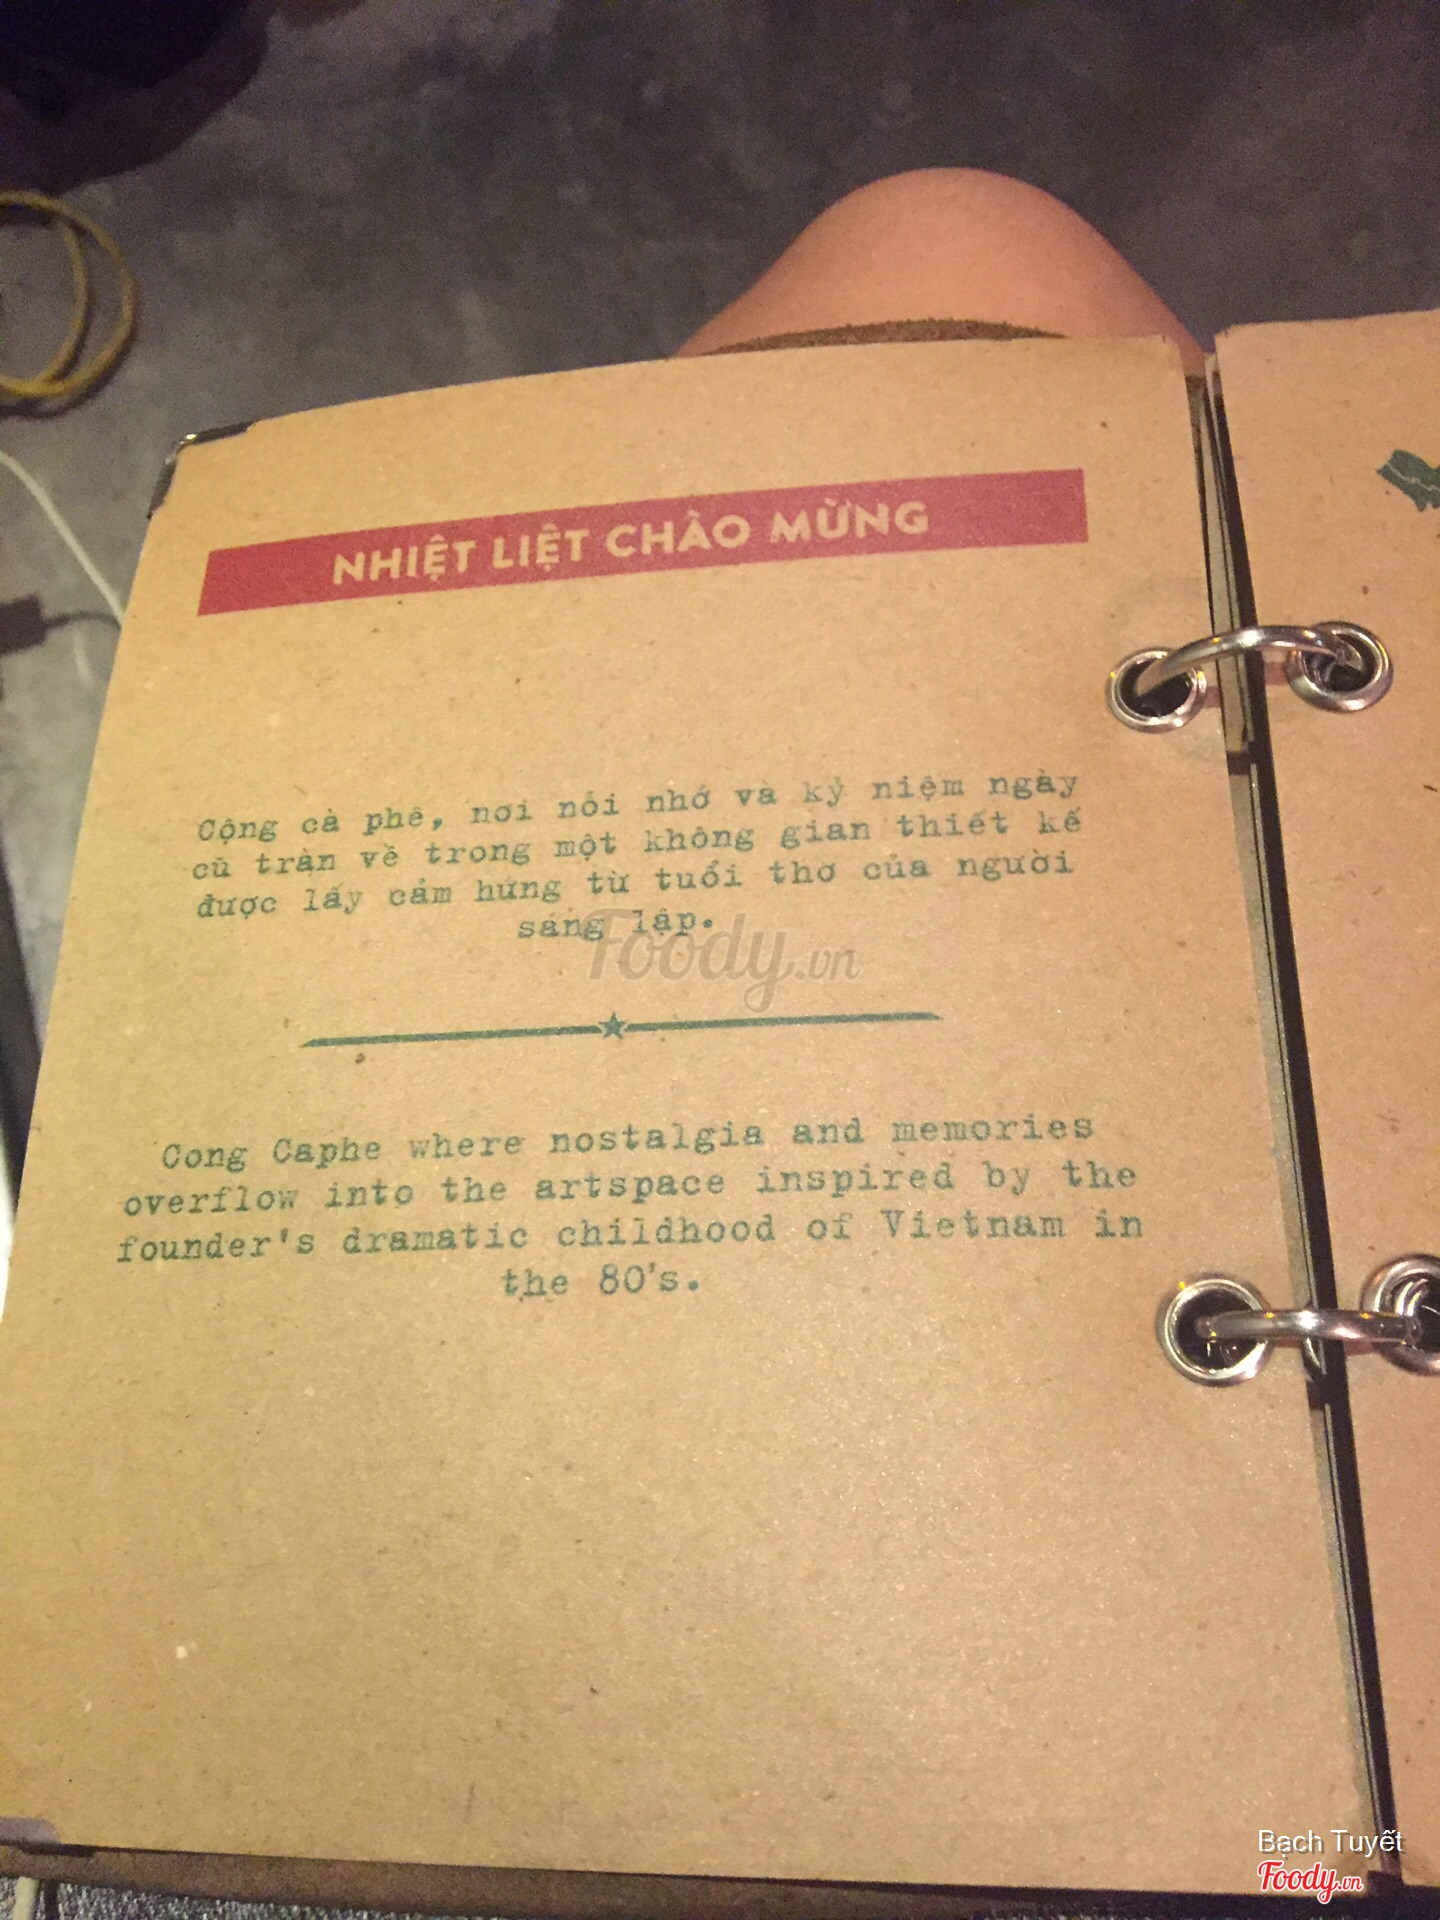 NHIỆT LIỆT CHÀO MỪNG
Cộng cà phê, nơi nỗi nhớ và kỷ niệm ngày
cũ tràn về trong một không gian thiết kế
được lấy cảm hứng từ tuổi thơ của người
sáng lập.
Foody.vn
Cong Caphe where nostalgia and memories
overflow into the artspace inspired by the
founder's dramatic childhood of Vietnam in
the 80's.
Bạch Tuyết
Foody.vn